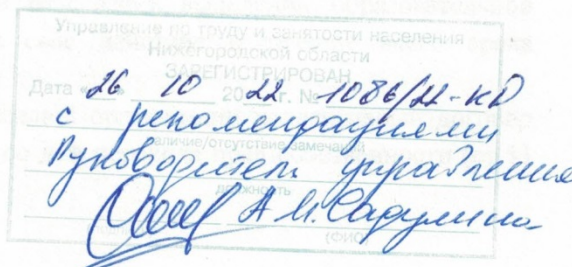 Управление по труду и занятости населения
Нижегородской области
ЗАРЕГИСТРИРОВАН
Дата «26» 10 2022 г. № 1086/22-КД
с рекомендациями
наличие/отсутствие замечаний
Руководитель управления
должность
А.М.
(ФИО)